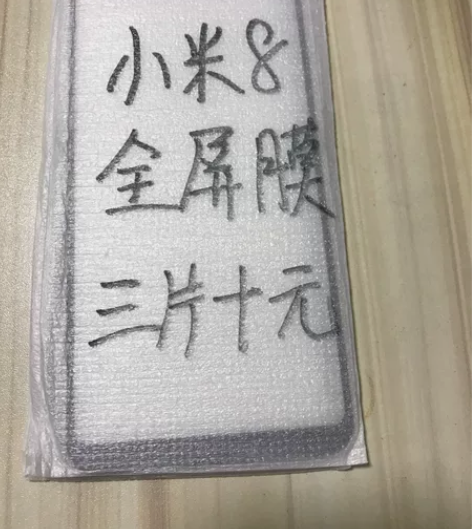 小米8
全屏膜
三片十元